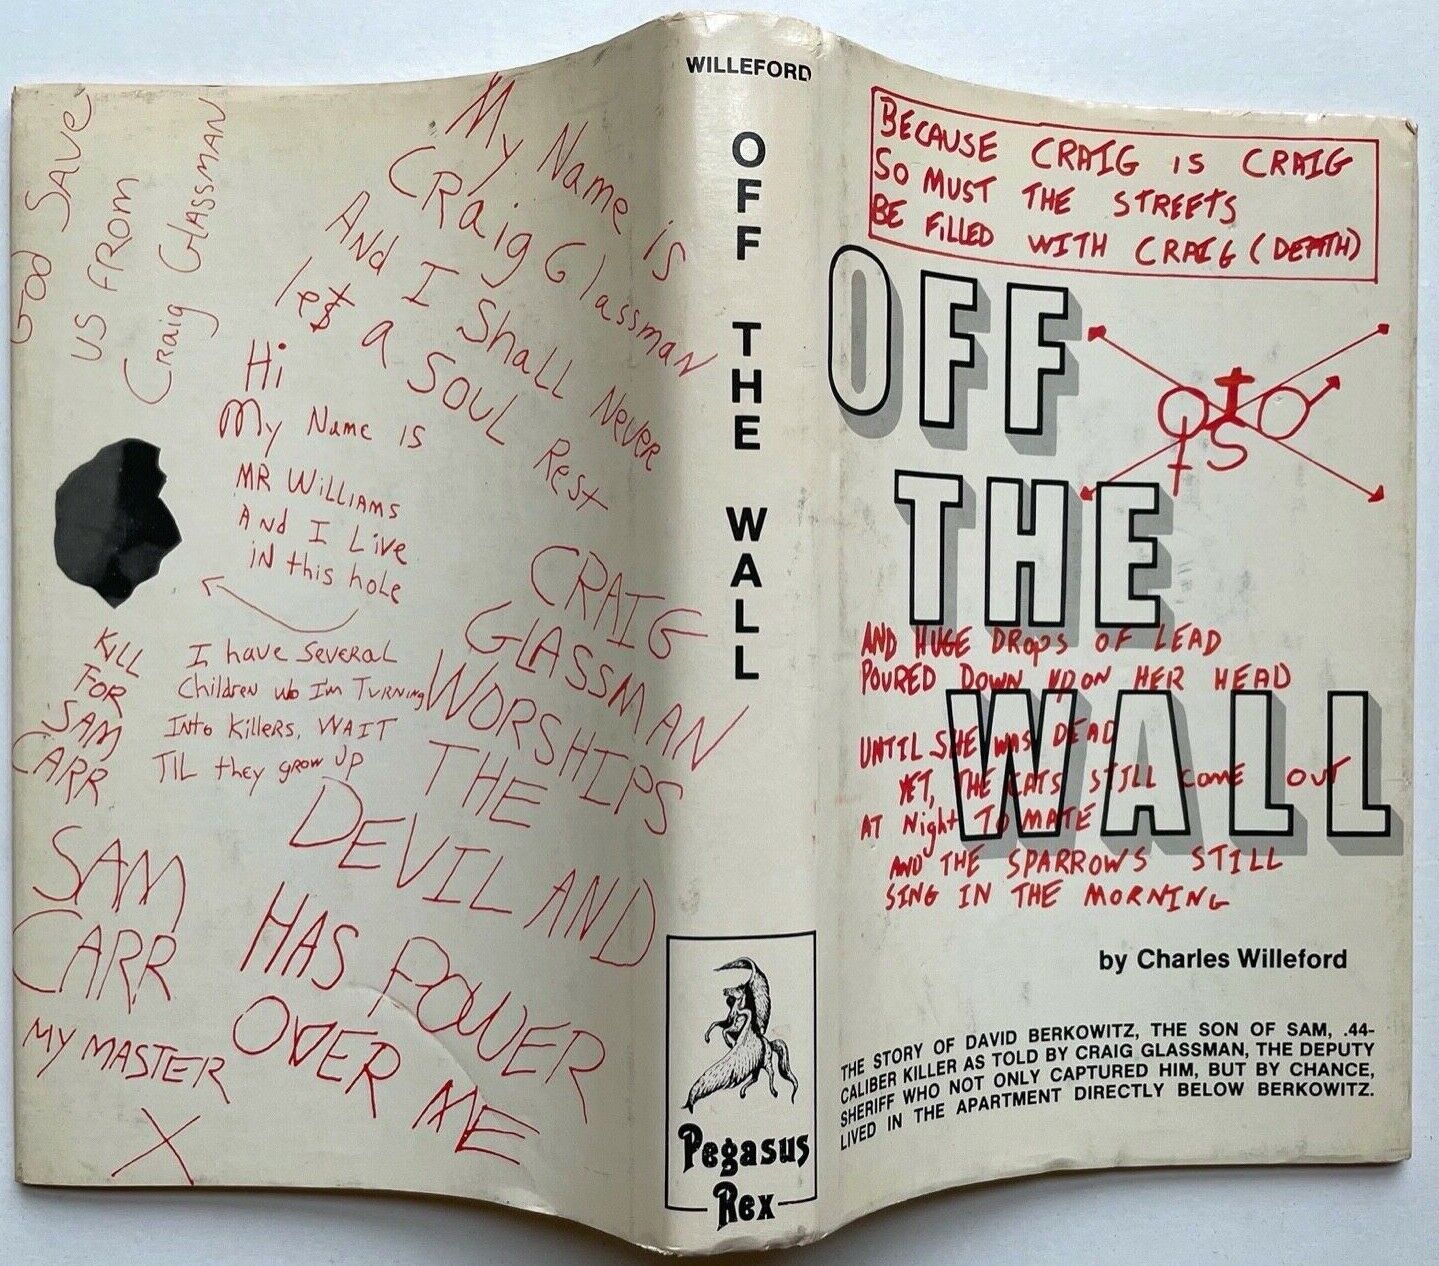 God Save
us From
Craig Glassman
My Name is
CRaig Glassman
And I Shall Never
let a Soul Rest
Hi
My Name is
MR Williams
And I Live
in this hole
I have Several
Children who I'm Turning
Into Killers. WAIT
TIL they grow Up
KILL
FOR
SAM
CARR
CRAIG
GLASSMAN
WORSHIPS
THE
DEVIL AND
HAS POWER
OVER ME
SAM
CARR
MY MASTER
X
WILLEFORD
OFF
THE
WALL
Pegasus
Rex
BECAUSE CRAIG IS CRAIG
SO MUST THE STREETS
BE FILLED WITH CRAIG (DEATH)
OFF
S
THE
AND HUGE DROPS OF LEAD
POURED DOWN UPON HER HEAD
WALL
UNTIL SHE WAS DEAD
YET, THE CATS STILL COME OUT
AT Night TO MATE
AND THE SPARROWS STILL
SING IN THE MORNING
by Charles Willeford
THE STORY OF DAVID BERKOWITZ, THE SON OF SAM, .44-
CALIBER KILLER AS TOLD BY CRAIG GLASSMAN, THE DEPUTY
SHERIFF WHO NOT ONLY CAPTURED HIM, BUT BY CHANCE,
LIVED IN THE APARTMENT DIRECTLY BELOW BERKOWITZ.